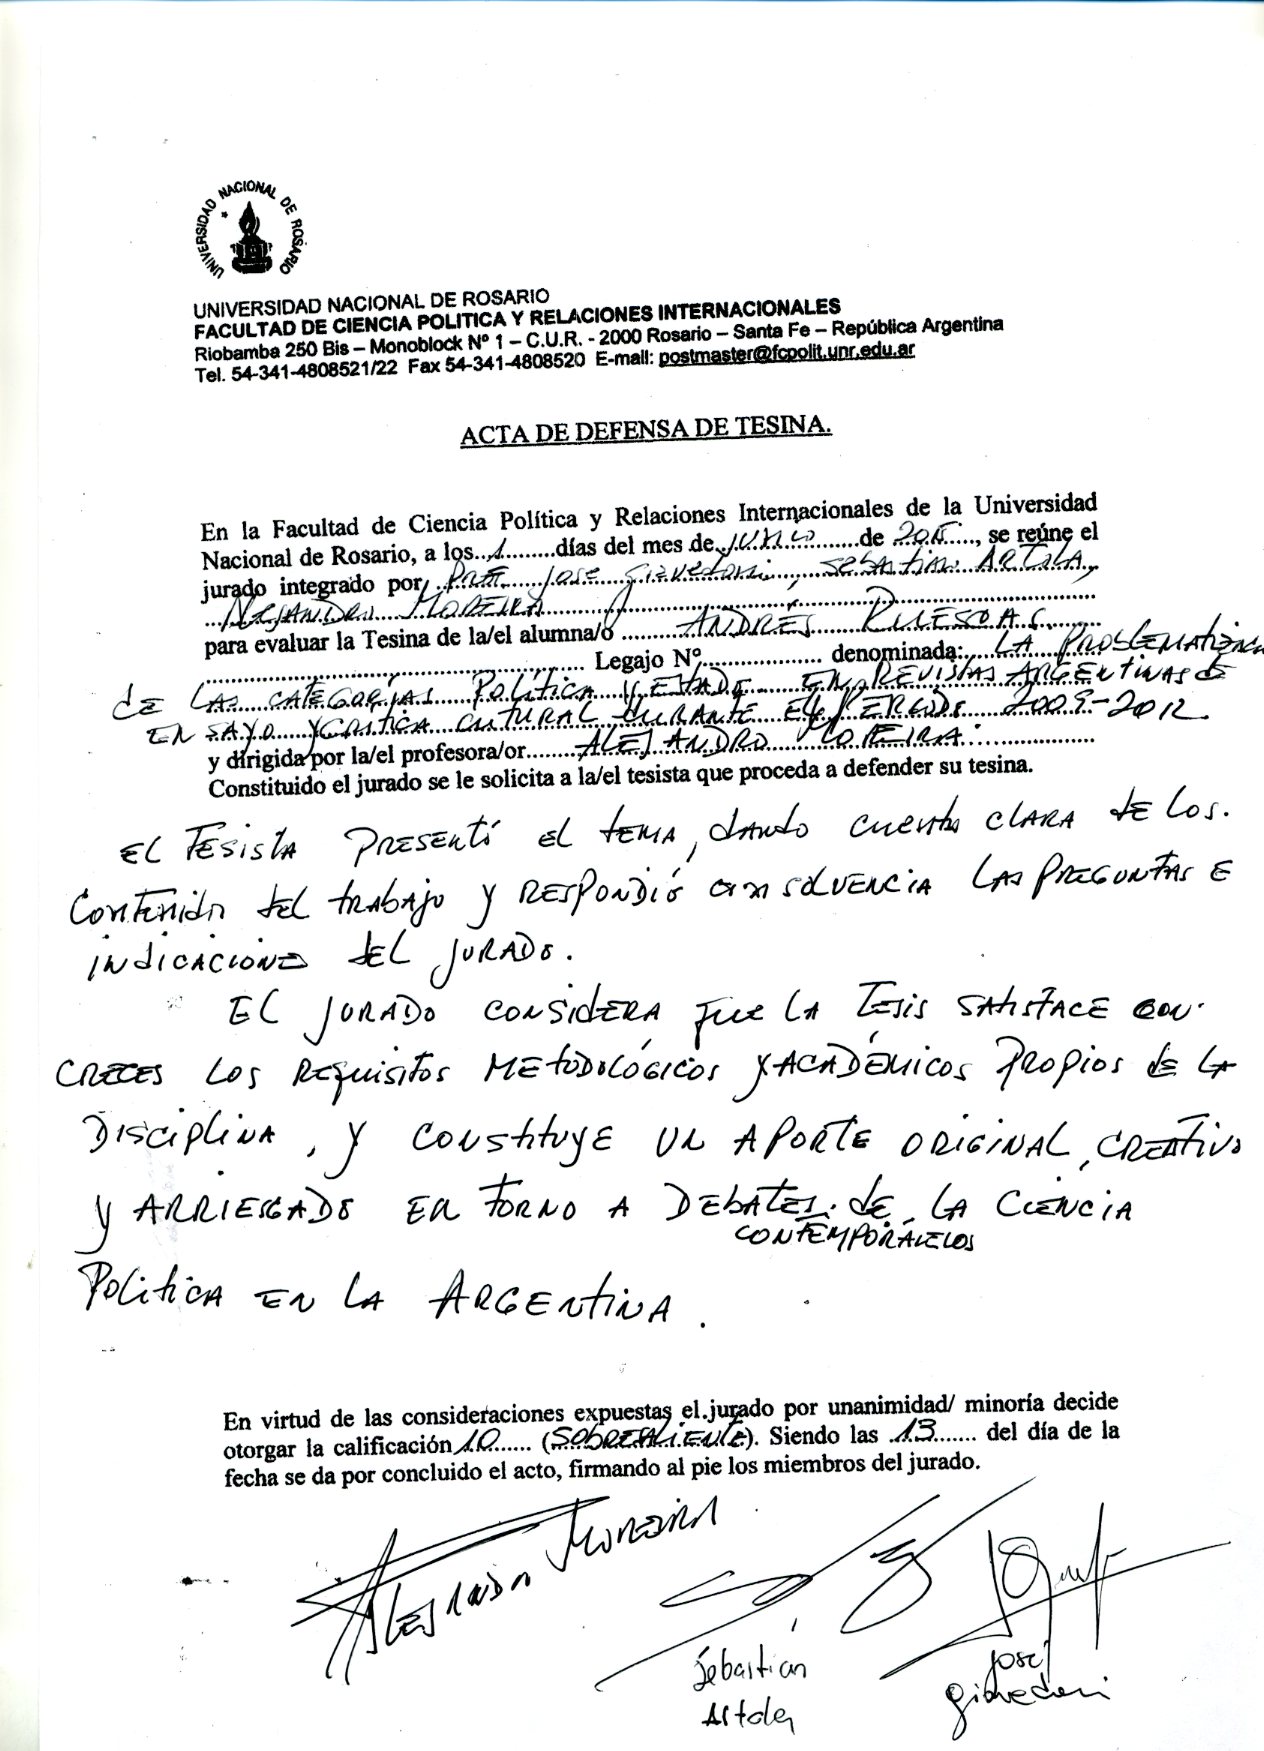 UNIVERSIDAD NACIONAL DE ROSARIO
UNIVERSIDAD NACIONAL DE ROSARIO
FACULTAD DE CIENCIA POLITICA Y RELACIONES INTERNACIONALES
Riobamba 250 Bis – Monoblock Nº 1 – C.U.R. - 2000 Rosario – Santa Fe – República Argentina
Tel. 54-341-4808521/22 Fax 54-341-4808520 E-mail: postmaster@fcpolit.unr.edu.ar
ACTA DE DEFENSA DE TESINA.
En la Facultad de Ciencia Política y Relaciones Internacionales de la Universidad
Nacional de Rosario, a los..1........días del mes de.JUNIO.......de ......, se reúne el
jurado integrado por, José Giavedoni, Sebastián ARTOLA,
ALEJANDRO MOREIRA
para evaluar la Tesina de la/el alumna/o ........ANDRÉS
........ Legajo Nº................ denominada:....LA PROBLEMATIZACIÓN
DE LAS CATEGORÍAS POLÍTICA Y ESTADO EN REVISTAS ARGENTINAS de
ENSAYO Y CRITICA CULTURAL DURANTE EL PERIODO 2009-2012.
y dirigida por la/el profesora/or........ALEJANDRO MOREIRA.
Constituido el jurado se le solicita a la/el tesista que proceda a defender su tesina.
EL TESISTA PRESENTÓ EL TEMA, dando cuenta clara de los.
Contenido del trabajo y RESPONDIÓ con solvencia LAS PREGUNTAS E
indicaciones del JURADO.
EL JURADO CONSIDERA que LA Tesis SATISFACE con.
CRECES LOS REQUISITOS METODOLÓGICOS Y ACADÉMICOS PROPIOS de LA
DISCIPLINA, Y CONSTITUYE UN APORTE ORIGINAL, CREATIVO
Y ARRIESGADO EN TORNO A DEBATES. de LA CIENCIA
CONTEMPORÁNEOS
POLITICA EN LA ARGENTINA.
En virtud de las consideraciones expuestas el jurado por unanimidad/ minoría decide
otorgar la calificación 10...... (SOBRESALIENTE). Siendo las .13....... del día de la
fecha se da por concluido el acto, firmando al pie los miembros del jurado.
ALEJANDRO MOREIRA
Sebastián
Artola
José
Giavedoni